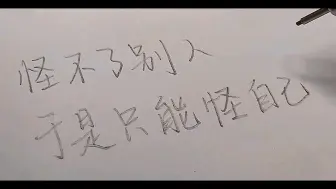 怪不了别人
于是只能怪自己